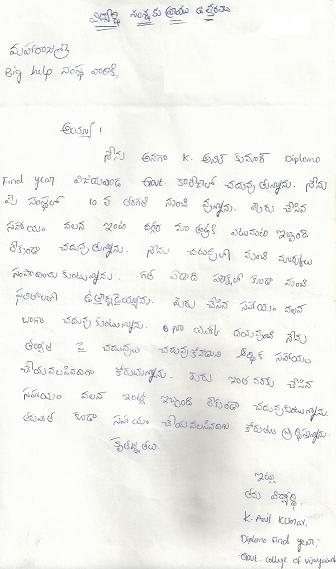 విద్యార్థి సంస్థకు వ్రాయు ఉత్తరము
మహారాజశ్రీ
Big help సంస్థ వారికి,
అయ్యా!
నేను అనగా K. అనిల్ కుమార్ Diploma
Final year విజయవాడ Govt. కాలేజీలో చదువుతున్నాను. నేను
మీ సంస్థలో 10 వ తరగతి నుంచి వున్నాను. మీరు చేసిన
సహాయం వలన ఇంటి దగ్గర మా తల్లికి ఎటువంటి ఇబ్బంది
లేకుండా చదువుతున్నాను. నేను చదువులో మంచి మార్కులు
సంపాదించుకుంటున్నాను. గత ఏడాది పరీక్షల్లో కూడా మంచి
ఫలితాలతో ఉత్తీర్ణుడైయ్యాను. మీరు చేసిన సహాయం వలన
బాగా చదువుకుంటున్నాను. దయవుంచి నేను
తర్వాత పై చదువులు చదువుకోవడానికి ఆర్థిక సహాయం
చేయవలసినదిగా కోరుచున్నాను. మీరు ఇంత వరకు చేసిన
సహాయం వలన ఇంట్లో ఇబ్బంది లేకుండా చదువుకుంటున్నాను.
తరువాత కూడా సహాయం చేయవలసినదిగా కోరుతూ ప్రార్థిస్తున్నాను.
కృతజ్ఞతలు.
ఇట్లు
తమ విద్యార్థి,
K. Anil Kumar,
Diploma final year,
Govt. college of vijayawada